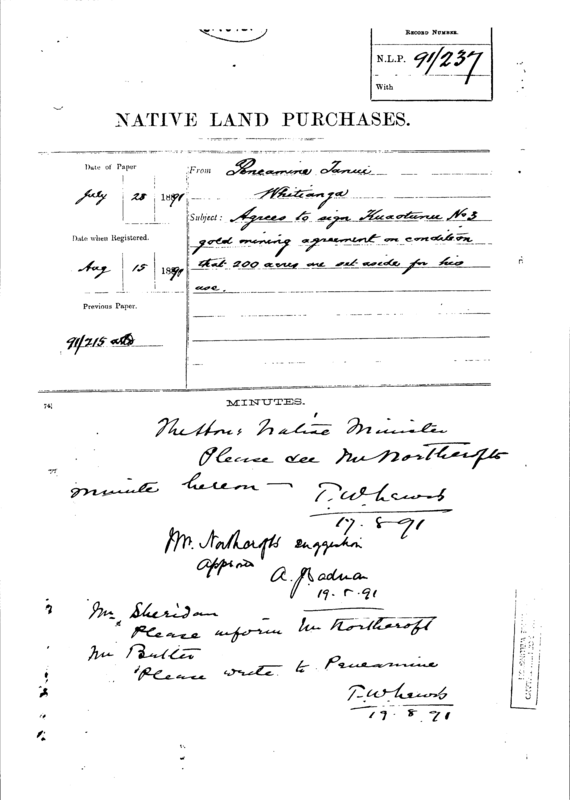 RECORD NUMBER.
N.L.P. 91/237
With
NATIVE LAND PURCHASES.
Date of Paper
July 28 1891
Date when Registered.
Aug 15 1891
Previous Paper.
91/215
From Peneamine Tanui
Whitianga
Subject: Agrees to sign Kuaotunu No 3
gold mining agreement on condition
that 200 acres are set aside for his
use.
74
MINUTES.
The Hon: Native Minister
Please see Mr Northcrofts
minute hereon —
T.W. Lewis
17.8.91
Mr. Northcrofts suggestion
approved
A. J. Cadman
19.8.91
Mr Sheridan
Please inform Mr Northcroft
Mr Butler
Please write to Peneamine
T.W. Lewis
19.8.91